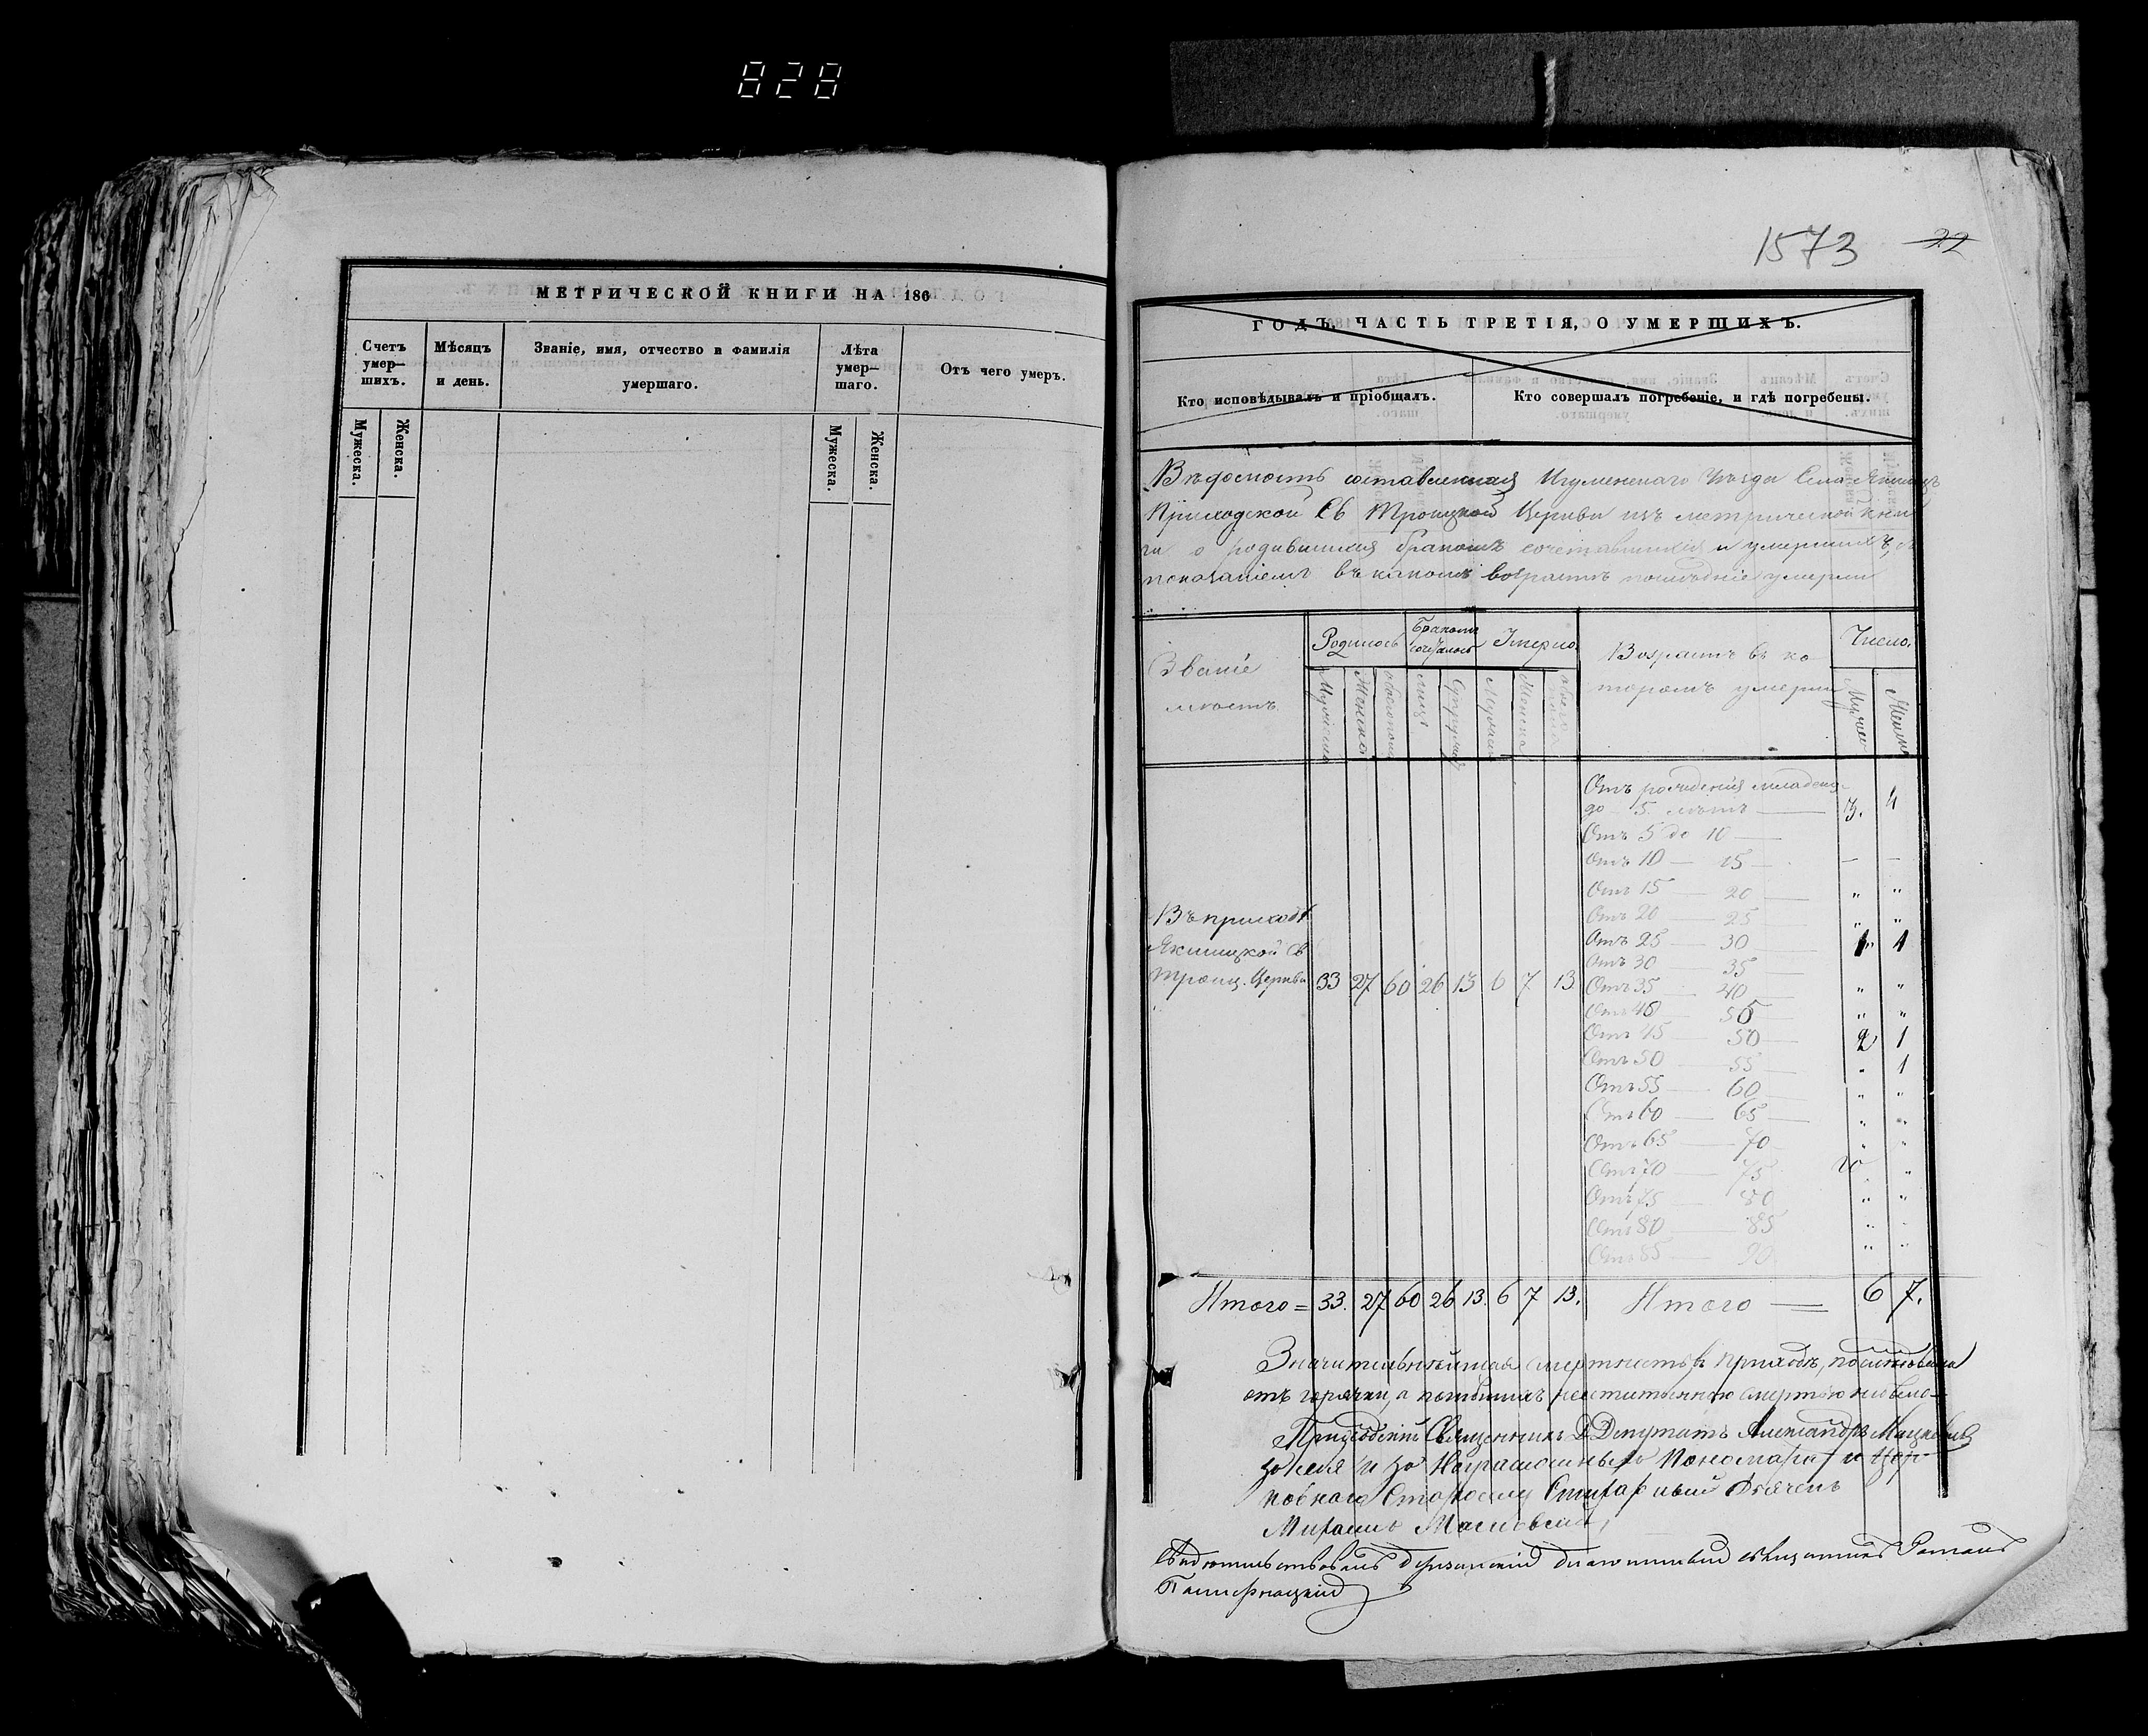 828
1573 22
МЕТРИЧЕСКОЙ КНИГИ НА 186
Счетъ умер— шихъ.
Мѣсяцъ и день.
Званіе, имя, отчество и фамилія умершаго.
Лѣта умер— шаго.
Отъ чего умеръ.
Мужеска.
Женска.
Мужеска.
Женска.
ГОДЪ, ЧАСТЬ ТРЕТІЯ, О УМЕРШИХЪ.
Кто исповѣдывалъ и пріобщалъ.
Кто совершалъ погребеніе, и гдѣ погребены.
Вѣдомость составленная Игуменскаго Уѣзда Села Якшицъ
Приходской Св Троицкой Церкви изъ метрической кни
ги о родившихся бракомъ сочетавшихся и умершихъ, съ
показаніемъ въ какомъ возрастѣ послѣдніе умерли
Званіе мѣстъ
Родилось
Бракомъ сочеталось
Умерло
Возрастъ въ ко торомъ умерли
Число.
Мужеска
Женска
обоего пола
лицъ
Мужеска
Женска
Отъ рожденія младенц.
до 5. лѣтъ 3. 4
Отъ 5 до 10
Отъ 10 — 15 — —
Отъ 15 — 20 " "
Отъ 20 25 " "
Отъ 25 — 30 1 1
Отъ 30 35
Отъ 35 40 " "
Отъ 40 50 " "
Отъ 45 50 2 1
Отъ 50 55 " 1
Отъ 55 60 " "
Отъ 60 — 65 " "
Отъ 65 — 70 " "
Отъ 70 — 75 "
Отъ 75 80 " "
Отъ 80 — 85 " "
Отъ 85 90 " "
Въ приходѣ
Якшицкой Св
Троиц. Церкви 33 27 60 26 13 6 7 13
Итого = 33. 27 60 26 13. 6 7 13. Итого — 6 7.
Значительнѣйшая смертность въ приходѣ, послѣдовала
отъ горячки, а погибшихъ смертію небыло
Приходскій Священникъ Депутатъ Александръ
за себя и за неграмотныхъ Пономаря и цер
ковнаго Старосту Дьячекъ
Михаилъ
Свидѣтельствовалъ благочинный священникъ Романъ